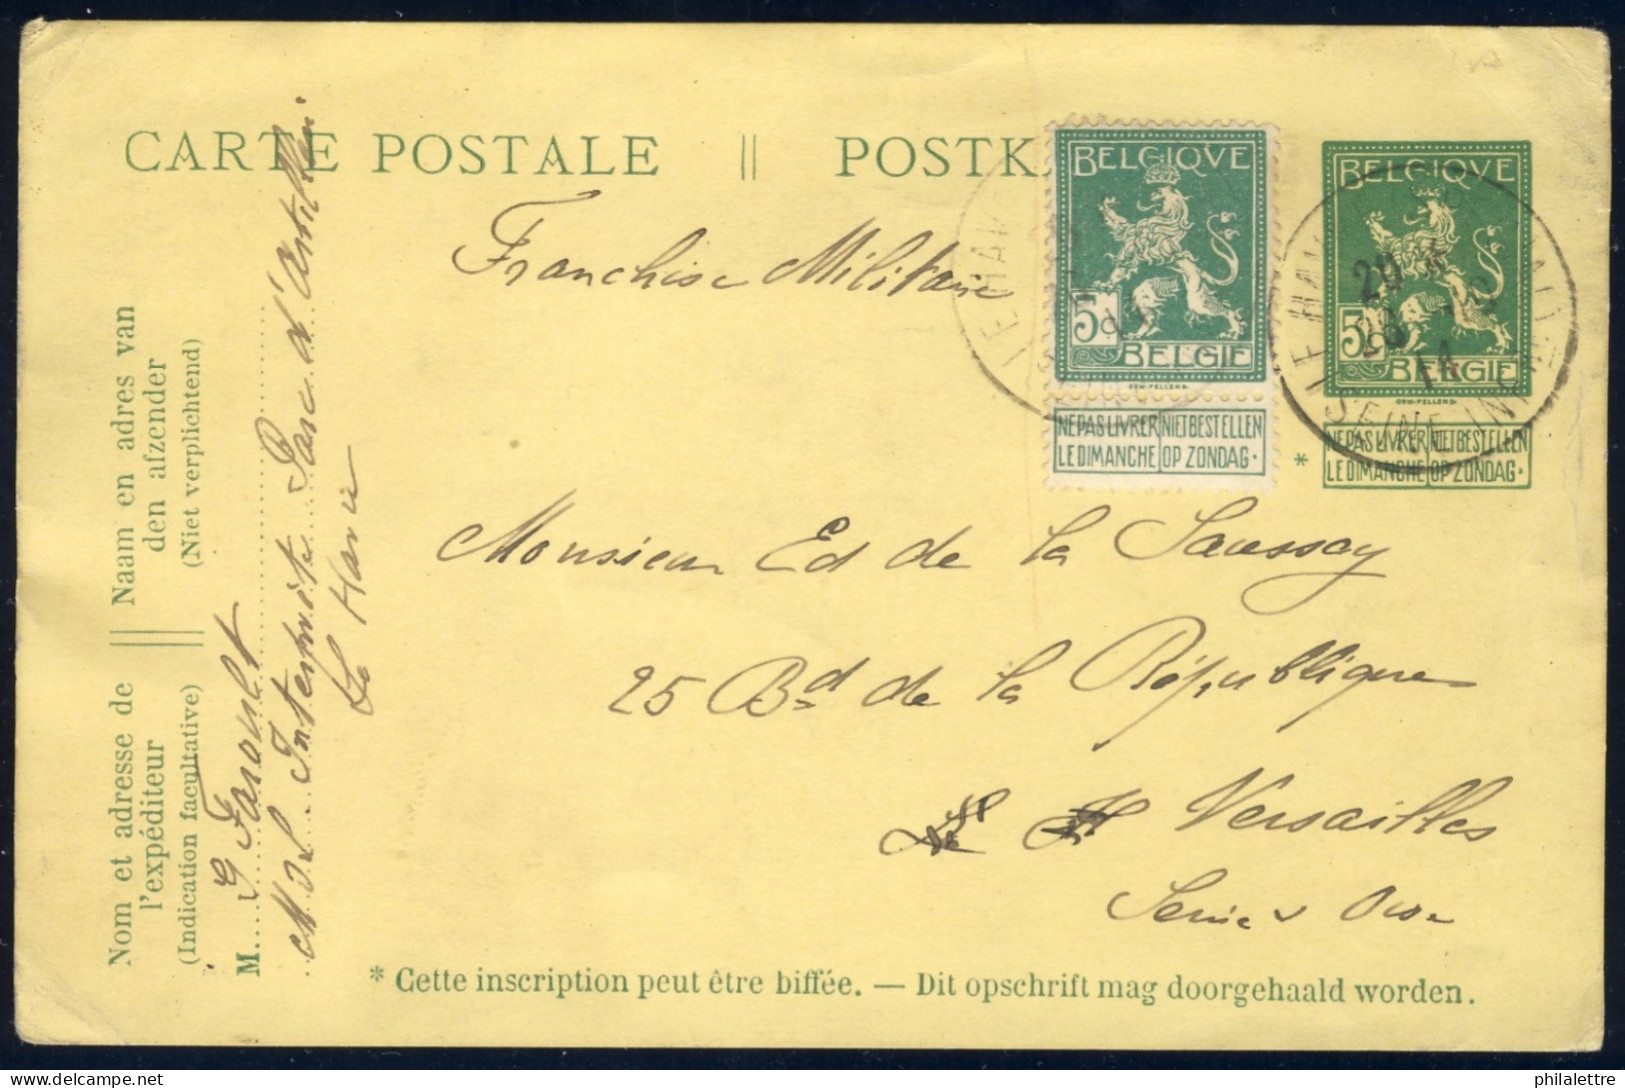 CARTE POSTALE || POSTK
Franchise Militaire
BELGIQVE
5c
BELGIE
NE PAS LIVRER NIET BESTELLEN
LE DIMANCHE OP ZONDAG.
BELGIQVE
5
BELGIE
* NE PAS LIVRER NIET BESTELLEN
LE DIMANCHE OP ZONDAG.
LE HAV
LE HAV
28
14
SEINE INF
Monsieur Ed de la Saussay
25 Bd de la République
Versailles
Seine & Oise
* Cette inscription peut être biffée. — Dit opschrift mag doorgehaald worden.
Nom et adresse de || Naam en adres van
l'expéditeur den afzender
(Indication facultative) (Niet verplichtend)
G
M.
Parc d'Artillerie
Le Havre
delcampe.net
philalettre